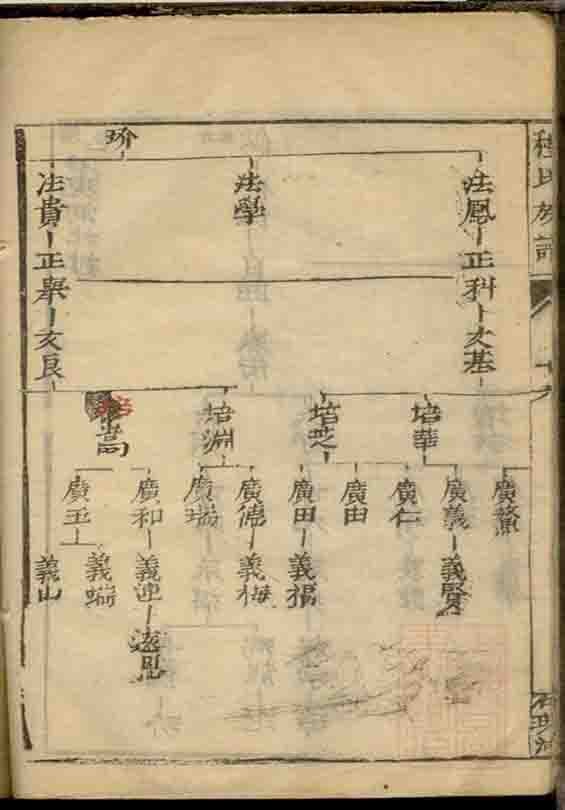 程氏族譜
玠
法鳳 正科 文基
法學
法貴 正舉 文良
培華
培芝
培淵
培嵩
廣鰲
廣義 義賢
廣仁
廣由
廣田 義福
廣德 義梅
廣瑞
廣和 義迎 遠思
廣玉
義瑞
義山